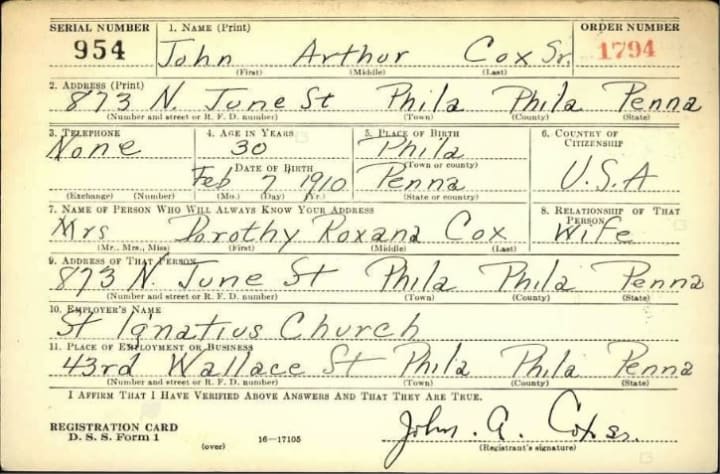 SERIAL NUMBER 1. NAME (Print) ORDER NUMBER
954 John Arthur Cox Sr. 1794
(First) (Middle) (Last)
2. ADDRESS (Print)
873 N. June St Phila Phila Penna
(Number and street or R. F. D. number) (Town) (County) (State)
3. TELEPHONE 4. AGE IN YEARS 5. PLACE OF BIRTH 6. COUNTRY OF CITIZENSHIP
None 30 Phila
(Town or county)
DATE OF BIRTH
Feb 7 1910 Penna U.S.A
(Exchange) (Number) (Mo.) (Day) (Yr.) (State or country)
7. NAME OF PERSON WHO WILL ALWAYS KNOW YOUR ADDRESS 8. RELATIONSHIP OF THAT PERSON
Mrs Dorothy Roxana Cox Wife
(Mr., Mrs., Miss) (First) (Middle) (Last)
9. ADDRESS OF THAT PERSON
873 N. June St Phila Phila Penna
(Number and street or R. F. D. number) (Town) (County) (State)
10. EMPLOYER'S NAME
St Ignatius Church
11. PLACE OF EMPLOYMENT OR BUSINESS
43rd Wallace St Phila Phila Penna
(Number and street or R. F. D. number) (Town) (County) (State)
I AFFIRM THAT I HAVE VERIFIED ABOVE ANSWERS AND THAT THEY ARE TRUE.
REGISTRATION CARD John. A. Cox Sr.
D. S. S. Form 1 (over) 16-17105 (Registrant's signature)